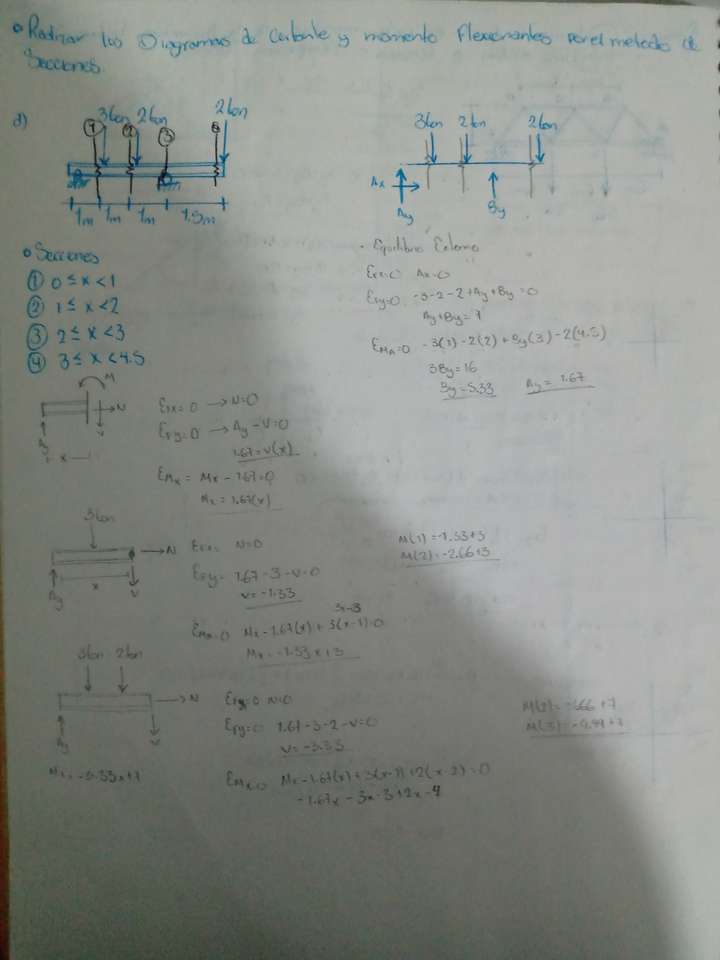 • Realizar los Diagramas de Cortante y momento Flexionantes por el metodo de
Secciones.
d)
3ton 2ton 2ton
1 2 3 4
1m 1m 1m 1.5m
3ton 2ton 2ton
Ax
Ay
By
• Secciones
① 0 ≤ x < 1
② 1 ≤ x < 2
③ 2 ≤ x < 3
④ 3 ≤ x < 4.5
• Equilibrio Externo
ΣFx=0 Ax=0
ΣFy=0 -3-2-2+Ay+By=0
Ay+By=7
ΣMA=0 -3(1)-2(2)+By(3)-2(4.5)
3By=16
By=5.33 Ay=1.67
M
N
V
Ay
x
ΣFx=0 → N=0
ΣFy=0 → Ay-V=0
1.67=V(x)
ΣMx= Mx-1.67=0
Mx=1.67(x)
3ton
N
Ay
x
V
ΣFx= N=0
ΣFy= 1.67-3-V=0
V=-1.33
3x-3
ΣMx=0 Mx-1.67(x)+3(x-1)=0
Mx=-1.33x+3
M(1)=-1.33+3
M(2)=-2.66+3
3ton 2ton
N
Ay
V
Mx=-3.33x+7
ΣFx=0 N=0
ΣFy=0 1.67-3-2-V=0
V=-3.33
ΣMx=0 Mx-1.67(x)+3(x-1)+2(x-2)=0
-1.67x-3x-3+2x-4
M(2)=-6.66+7
M(3)=-9.99+7